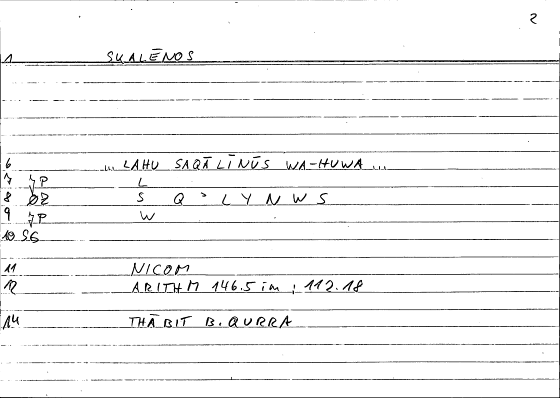 2
1 SKALĒNOS
6 ... LAHU SAQĀLĪNŪS WA-HUWA ...
7 P L
8 S Q ʾ L Y N W S
9 P W
10 SG
11 NICOM
12 ARITHM 146.5 im ; 112.18
14 THĀBIT B. QURRA